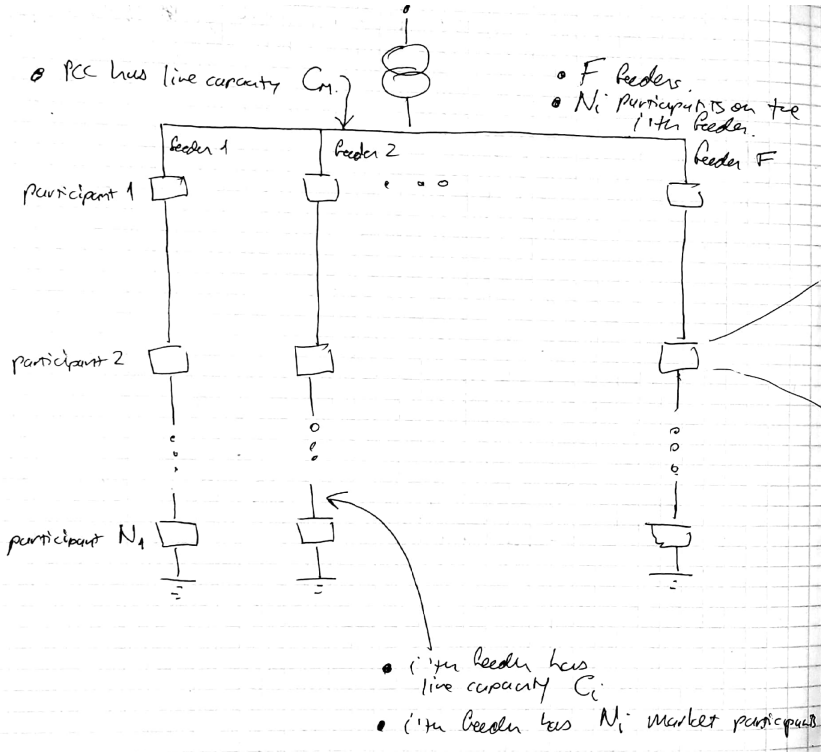 • PCC has line capacity C_M.
• F feeders.
• N_i participants on the
i'th feeder.
feeder 1
feeder 2
feeder F
participant 1
participant 2
participant N_1
• i'th feeder has
line capacity C_i
• i'th feeder has N_i market participants